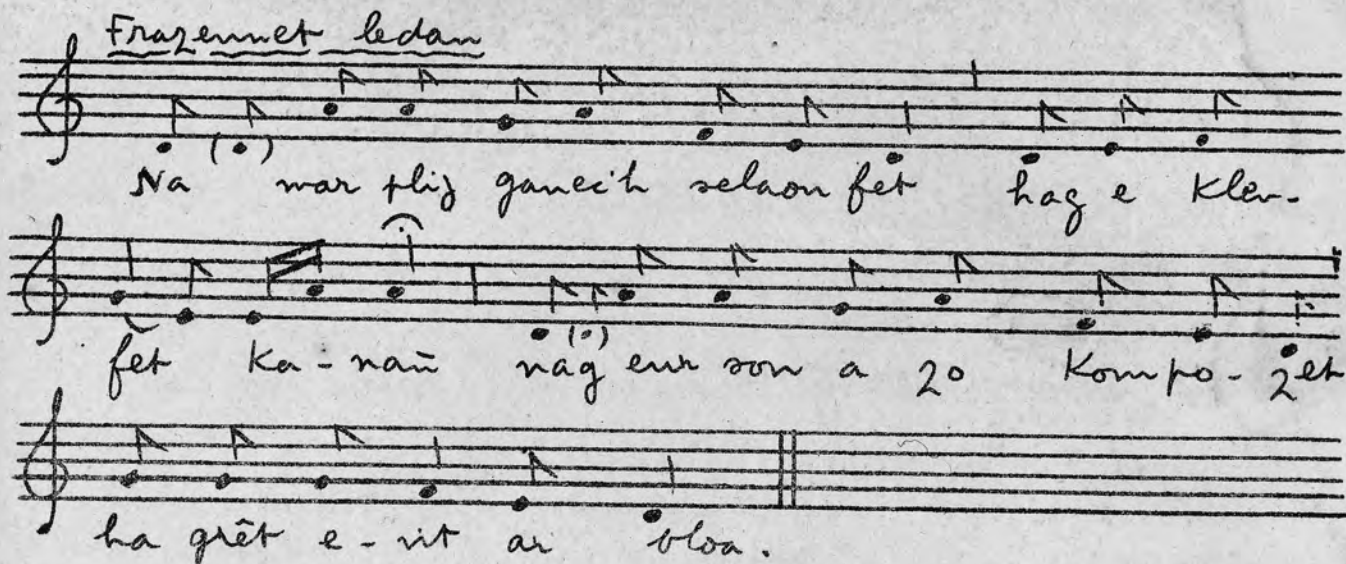 Frazennet ledan
Na mar plij ganec'h selaou fet hag e klev-
fet ka-nañ nag eur son a zo kompo-zet
ha grêt e-vit ar bloa.